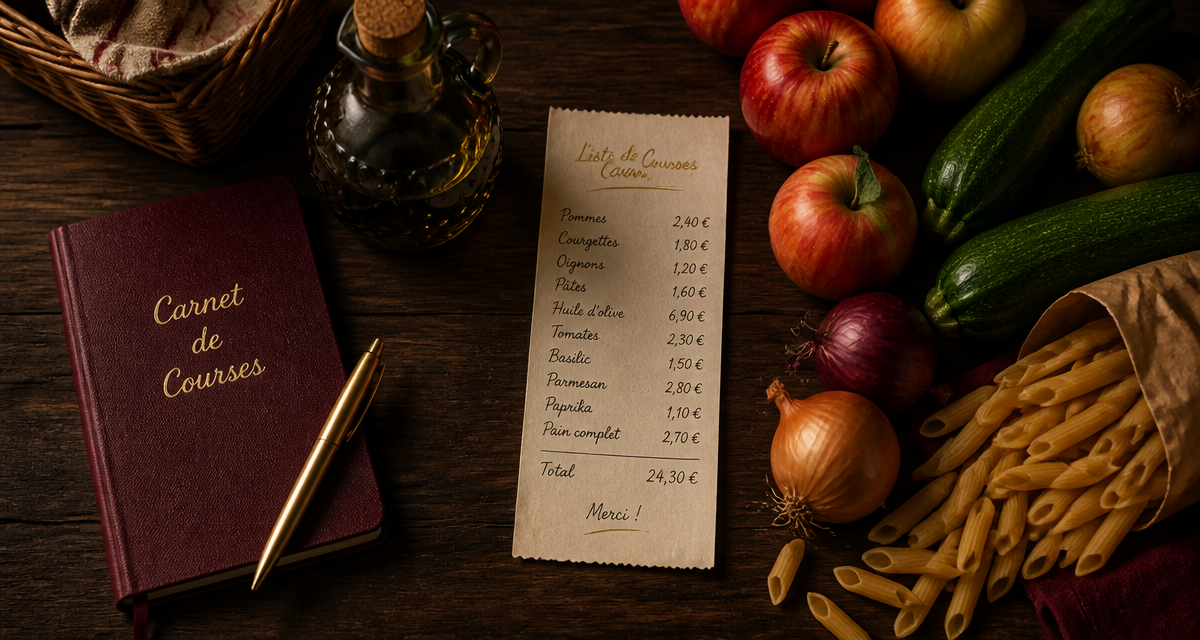 Carnet
de
Courses
Liste de Courses
Pommes 2,40 €
Courgettes 1,80 €
Oignons 1,20 €
Pâtes 1,60 €
Huile d'olive 6,90 €
Tomates 2,30 €
Basilic 1,50 €
Parmesan 2,80 €
Paprika 1,10 €
Pain complet 2,70 €
Total 24,30 €
Merci !